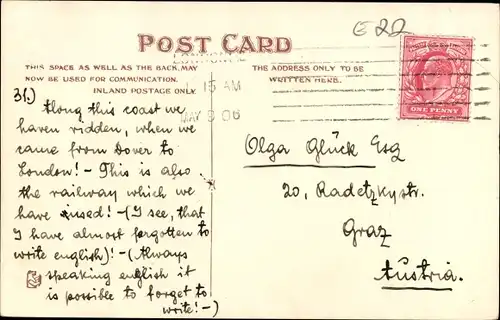 £22
POST CARD
THIS SPACE AS WELL AS THE BACK, MAY
NOW BE USED FOR COMMUNICATION.
INLAND POSTAGE ONLY.
THE ADDRESS ONLY TO BE
WRITTEN HERE.
LONDON
15 AM
MAY 9 06
ONE PENNY
31.)
Along this coast we
haven ridden, when we
came from Dover to
London! - This is also
the railway which we
have uused! - (I see, that
I have almost forgotten to
write english)! - (Always
speaking english it
is possible to forget to
write! -)
Olga Glück Esq
20, Radetzkystr.
Graz
Austria.